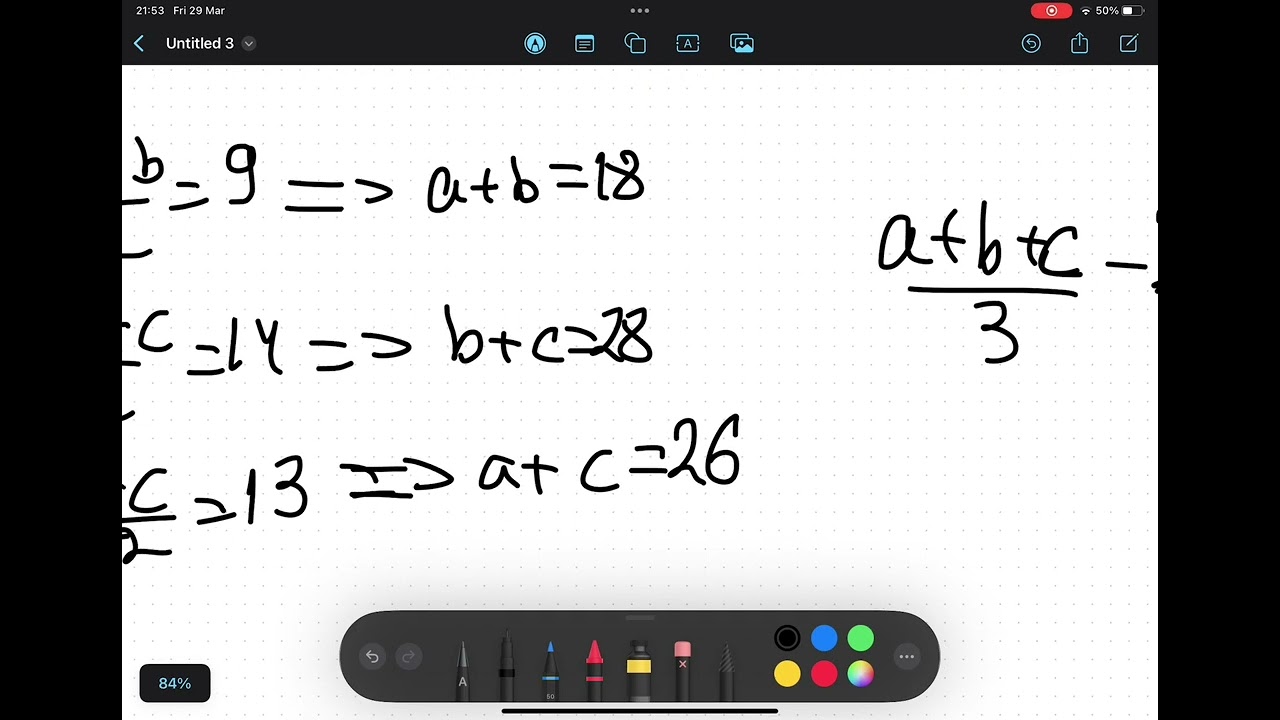 21:53 Fri 29 Mar
50%
Untitled 3
b = 9 => a+b=18
c =14 => b+c=28
c =13 => a+c=26
2
a+b+c
3
A
50
84%